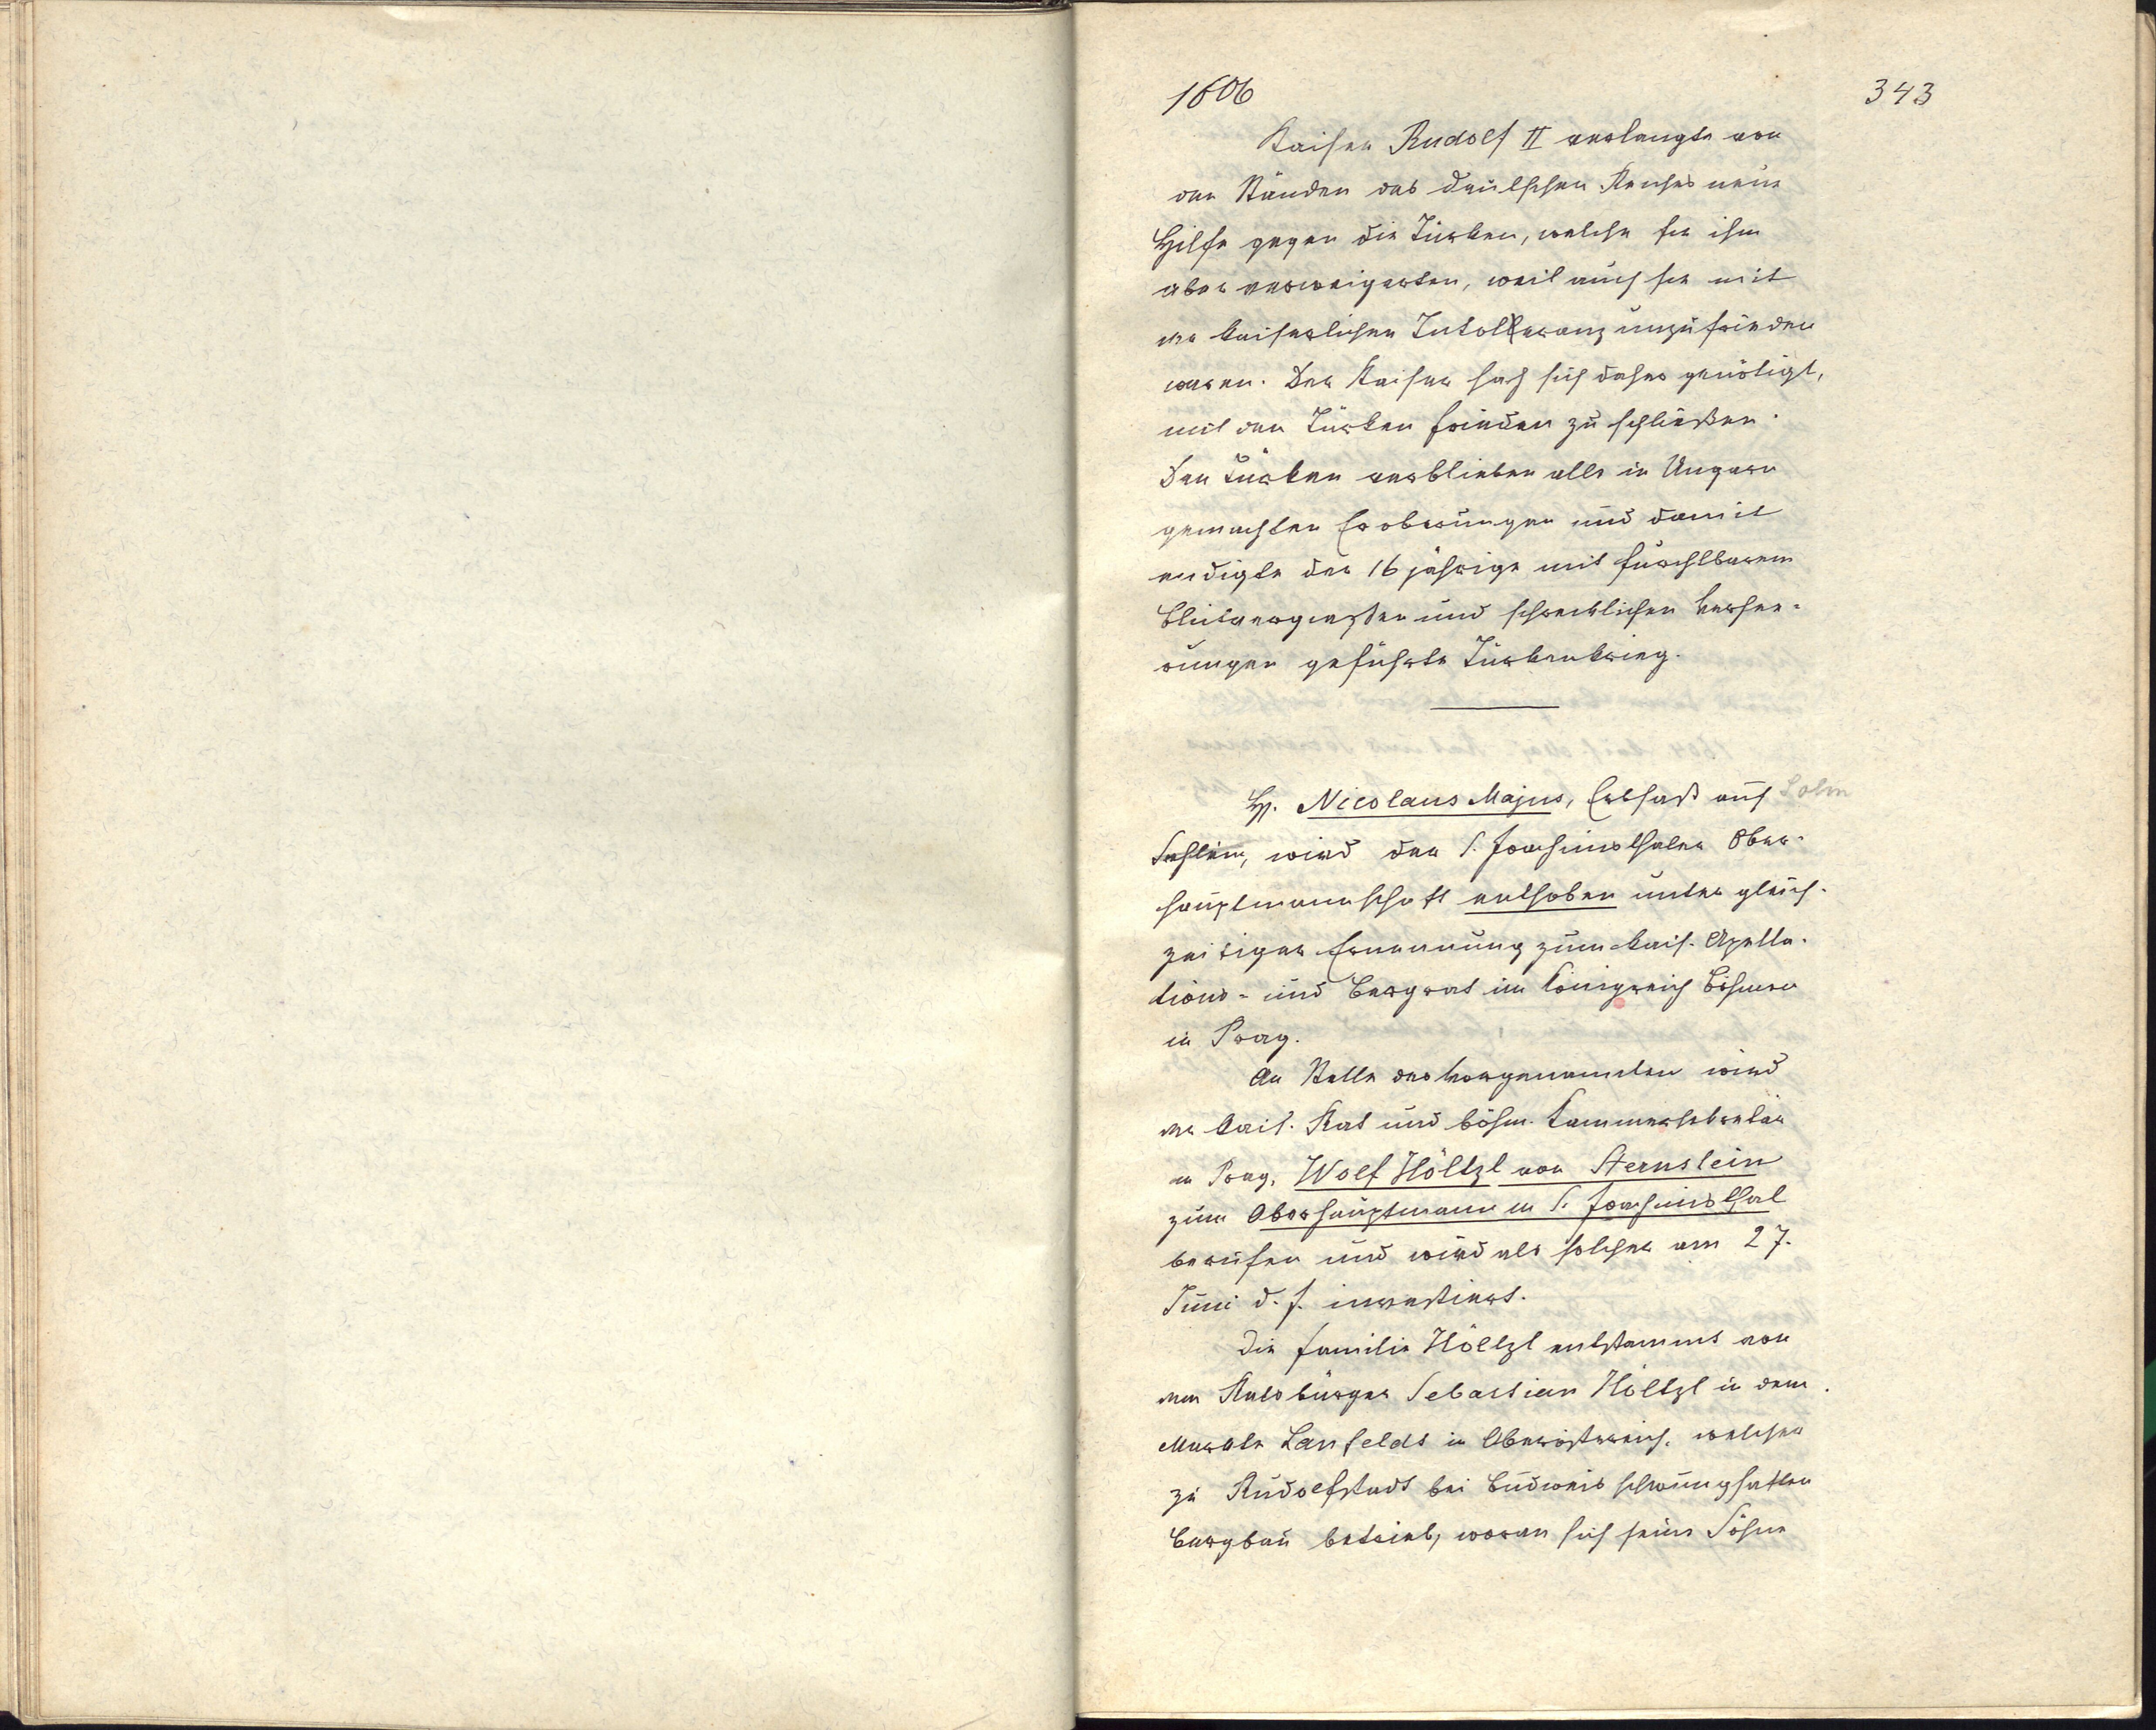 1606
343
Kaiser Rudolf II verlangte von
den Ständen des deutschen Reiches neue
Hilfe gegen die Türken, welche sie ihm
aber verweigerten, weil auch sie mit
der kaiserlichen Intolleranz unzufrieden
waren. Der Kaiser sah sich daher genötigt,
mit den Türken Frieden zu schließen.
Den Türken verblieben alle in Ungarn
gemachten Eroberungen und damit
endigte der 16 jährige mit furchtbarem
Blutvergießen und schrecklichen Verhee-
rungen geführte Türkenkrieg.
H. Nicolaus Majus, Erbsaß auf
wird der S. Joachimsthaler Ober-
hauptmannschaft enthoben unter gleich-
zeitiger Ernennung zum kais. Apella-
tions- und Bergrat im Königreich Böhmen
in Prag.
An Stelle des Vorgenannten wird
der kais. Rat und böhm. Kammersekretär
in Prag, Wolf Höltzl von Sternstein
zum Oberhauptmann in S. Joachimsthal
berufen und wird als solcher am 27.
Juni d. J. investiert.
Die Familie Höltzl entstammt von
dem Ratsbürger Sebastian Höltzl in dem
Markte Lanfelds in Oberösterreich, welcher
zu Rudolfstadt bei Budweis schwunghaften
Bergbau betrieb, woran sich seine Söhne